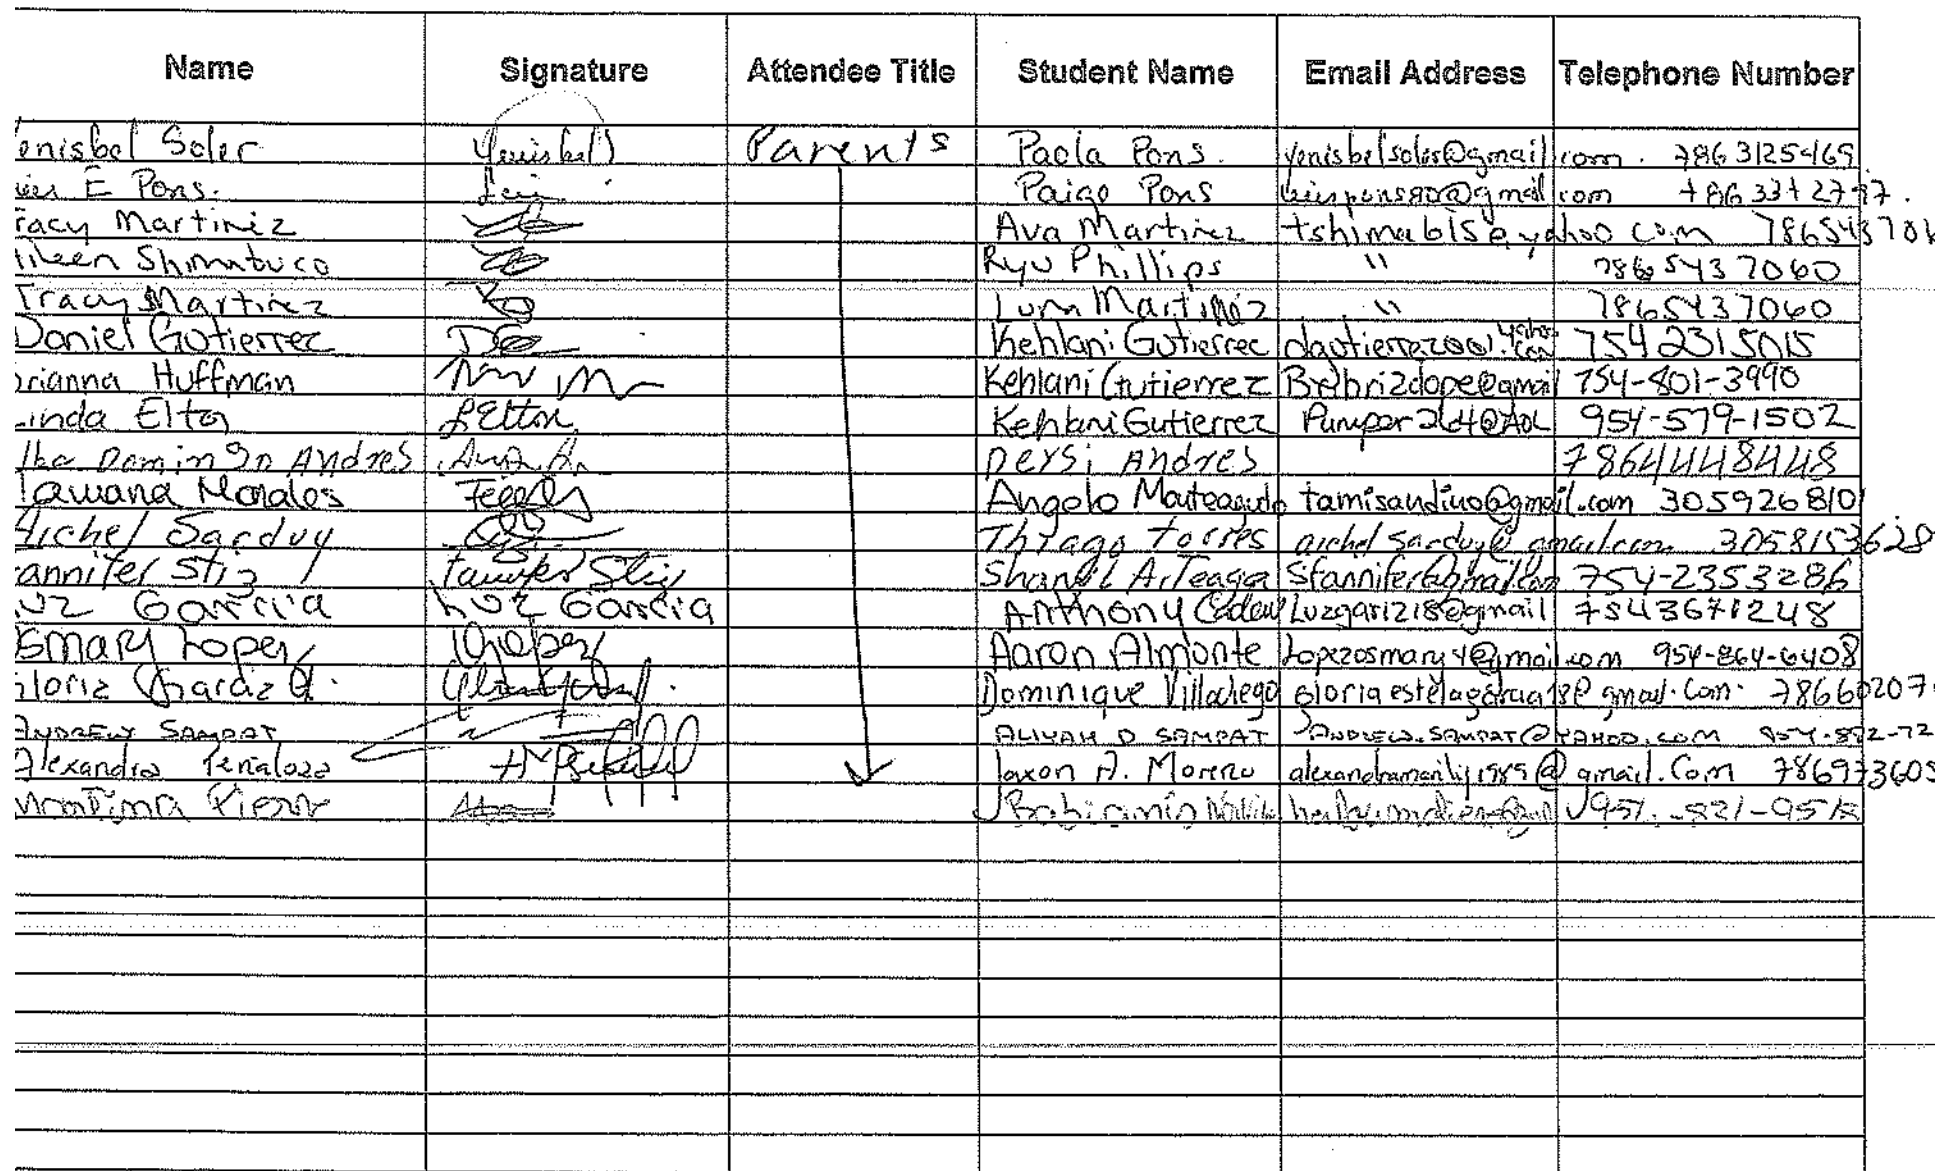 Name Signature Attendee Title Student Name Email Address Telephone Number
enisbel Soler Yenisbel Parents Paola Pons. yenisbelsoler@gmail.com. 7863125469
E Pons. Paige Pons @gmail com
racy Martinez Ava Martinez tshimabis@yahoo com 786543706
ileen Shimabuco Ryu Phillips " 7865437060
Tracy Martinez Luna Martinez " 7865437060
Daniel Gutierrez Kehlani Gutierrec dgutierrez001.yahoo.com 7542315015
rianna Huffman Kehlani Gutierrez 754-801-3990
inda Elton LElton Kehlani Gutierrez 954-579-1502
Domingo Andres Deysi Andres 7864448448
Morales Angelo Monteagudo tamisandino@gmail.com 305926810
ichel Sarduy Thiago Torres aichel sarduy@gmail.com 3058153628
annifer Stiz Shanel Arteaga Sfannifer@gmail.com 754-2353286
uz Garcia Luz Garcia Anthony Luzgari218@gmail 7543671248
smary Lopez Aaron Almonte Lopezosmary4@gmail.com 954-864-6408
loria Dominique gloriaestelagarcia18@gmail.com. 78660207
Andrew Sampat Aliyah D Sampat Andrew.Sampat@yahoo.com 954-892-72
Alexandra Penaloza Jaxon A. Moreno @gmail.Com 786973605
Pierre